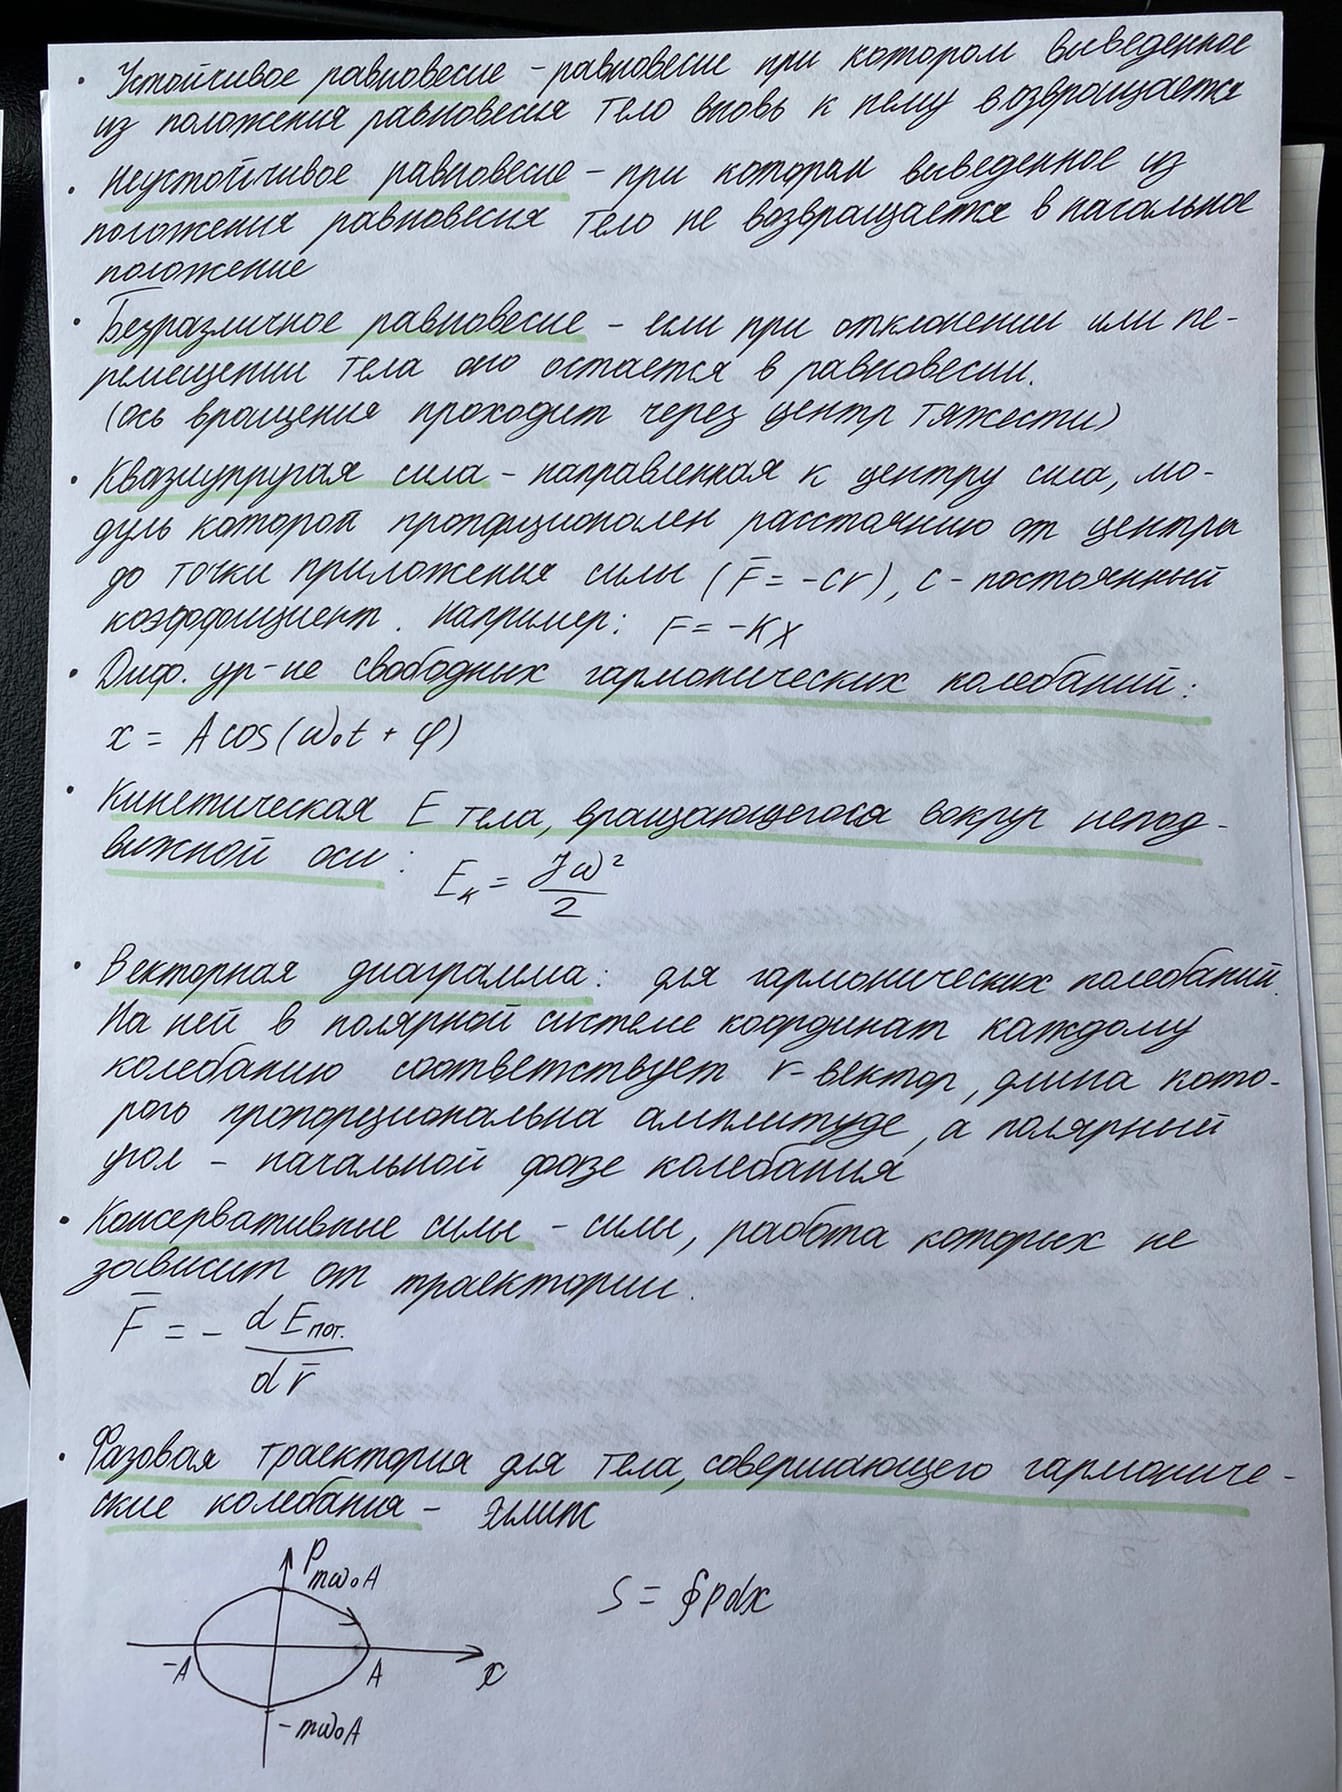 · Устойчивое равновесие – равновесие при котором выведенное
из положения равновесия тело вновь к нему возвращается
· Неустойчивое равновесие – при котором выведенное из
положения равновесия тело не возвращается в начальное
положение
· Безразличное равновесие – если при отклонении или пе-
ремещении тела оно остается в равновесии.
(ось вращения проходит через центр тяжести)
· Квазиупругая сила – направленная к центру сила, мо-
дуль которой пропорционален расстоянию от центра
до точки приложения силы (F̄ = -cr), c – постоянный
коэффициент. Например: F = -kx
· Диф. ур-не свободных гармонических колебаний:
x = A cos(ω₀t + φ)
· Кинетическая E тела, вращающегося вокруг непод-
вижной оси: Eₖ = Jω²/2
· Векторная диаграмма: для гармонических колебаний.
На ней в полярной системе координат каждому
колебанию соответствует r-вектор, длина кото-
рого пропорциональна амплитуде, а полярный
угол – начальной фазе колебания
· Консервативные силы – силы, работа которых не
зависит от траектории.
F̄ = - dEпот./dr̄
· Фазовая траектория для тела, совершающего гармониче-
ские колебания – эллипс
P
mω₀A
S = ∮pdx
-A A x
-mω₀A